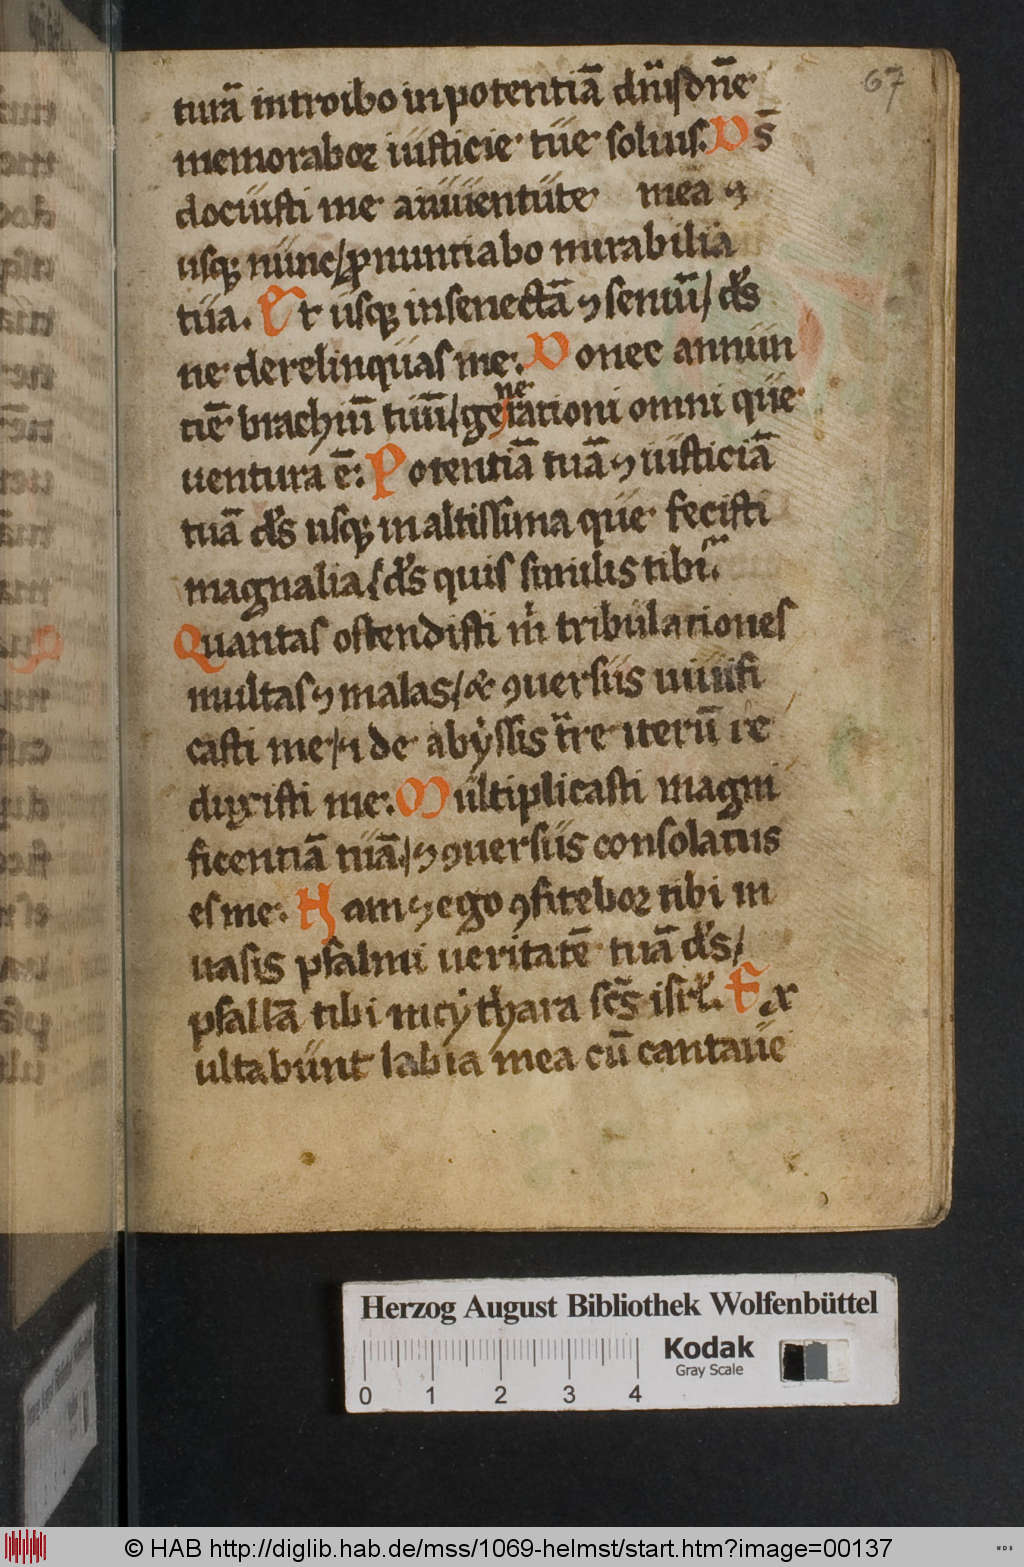 67
turā introibo in potentiā dn̄i s dn̄e
memorabor iusticie tue solius. Ds̄
docuisti me a iuuentute mea ⁊
usq; nunc / pronuntiabo mirabilia
tua. Et usq; in senectā ⁊ seniū / ds̄
ne derelinquas me: Donec annun
tiē brachiū tuū / generationi omni que
uentura ē: Potentiā tuā ⁊ iusticiā
tuā ds̄ usq; in altissima que fecisti
magnalia / ds̄ quis similis tibi.
Quantas ostendisti m̄ tribulationes
multas ⁊ malas / & ꝯuersus uiuifi
casti me / ⁊ de abyssis tr̄re iterū re
duxisti me. Multiplicasti magni
ficentiā tuā / ⁊ ꝯuersus consolatus
es me. Nam ⁊ ego ꝯfitebor tibi in
uasis psalmi ueritatē tuā ds̄ /
psallā tibi in cythara scs̄ isrl̄. Ex
ultabunt labia mea cū cantaue
Herzog August Bibliothek Wolfenbüttel
Kodak
Gray Scale
0 1 2 3 4
© HAB http://diglib.hab.de/mss/1069-helmst/start.htm?image=00137